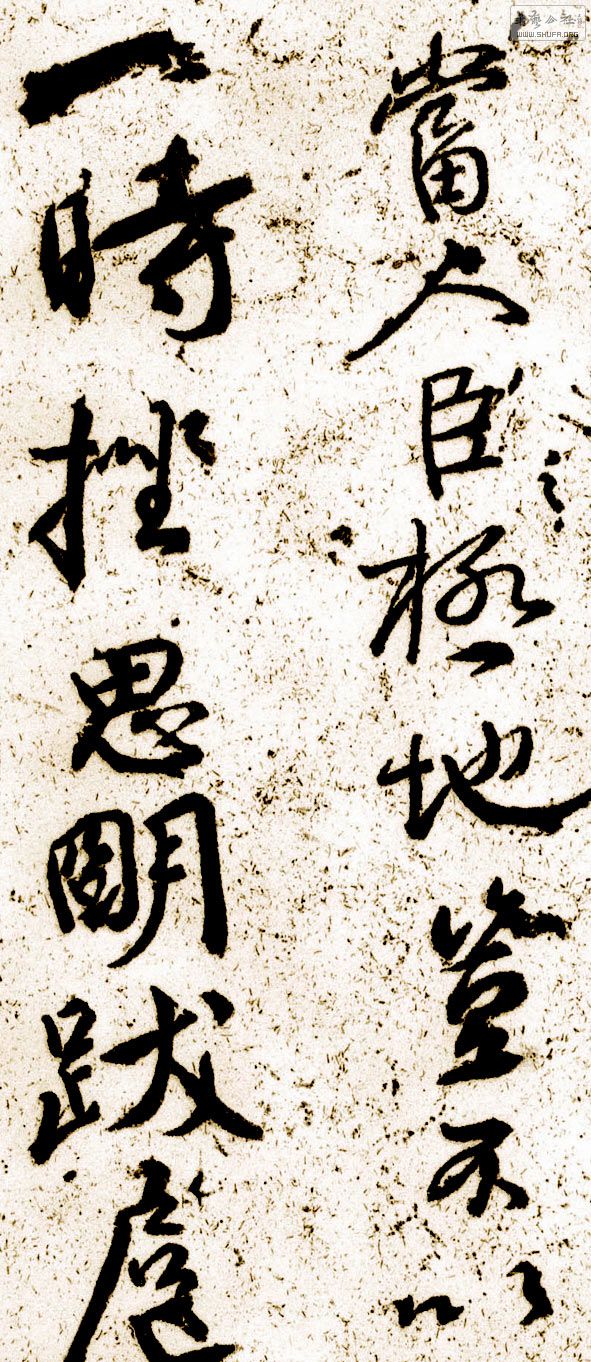 當人臣之極地豈不以
一時挫思明跋扈
書藝公社
WWW.SHUFA.ORG